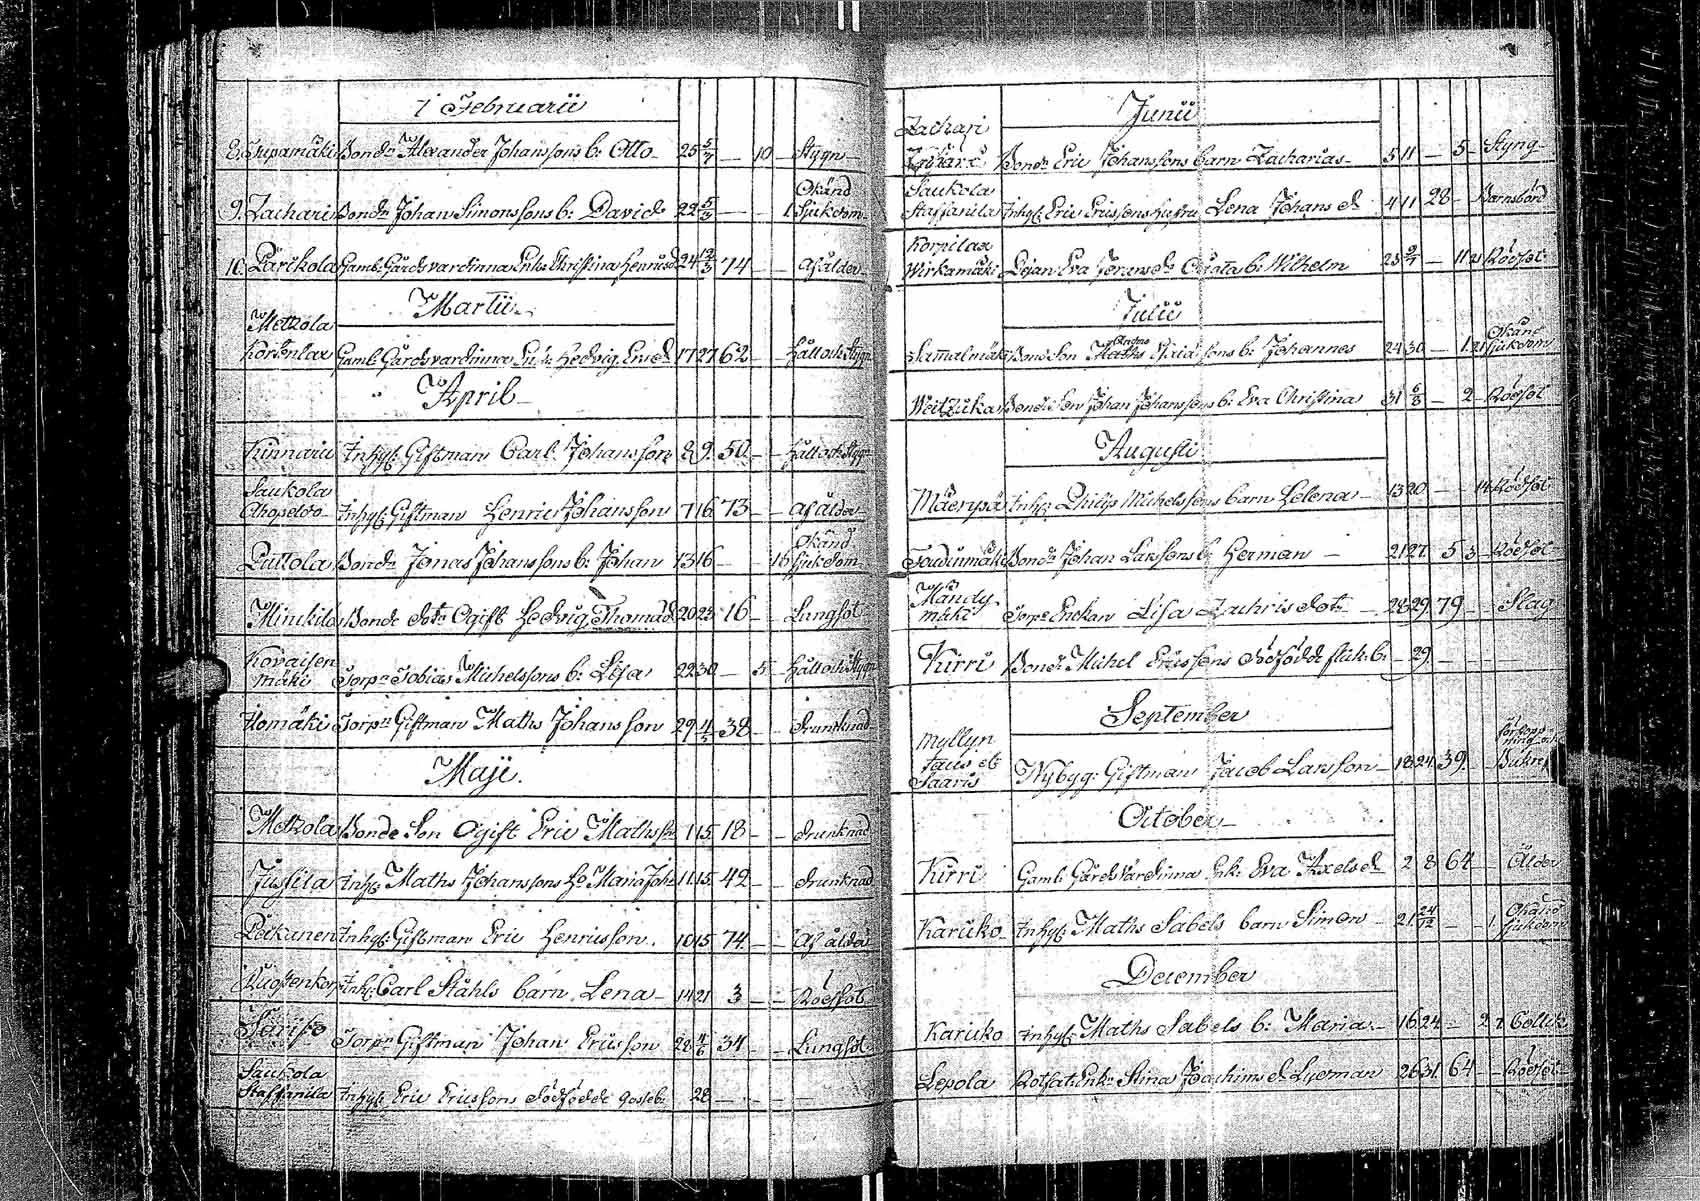 i Februarii
8. Bond: Alexander Johanssons b: Otto 25 5/7 — 10 — Stygn
9. Zachari Bond: Johan Simonssons b: David 22 5/3 — — 1 Okänd Sjukdom
10. Pärikola Gamb: Gårdsvärdinna Enk: Christina Henricsd 24 12/3 74 — — Af ålder
Martii
Metzola
Korkenlax Gamb: Gårdsvärdinna Enk: Hedvig Ericsd 17 27 62 — — Håll och Stygn
April
Kinnari Inhys: Giftman Carl Johansson 8 9. 50 — — Håll och Stygn
Saukola
Inhys: Giftman Henric Johansson 7 16 73 — — Af ålder
Puttola Bond: Jonas Johanssons b: Johan 13 16 — — 16 Okänd Sjukdom
Bonde dotr Ogift Hedvig Thomæd 20 23 16 — — Lungsot
Kovaisen
mäki Torp: Tobias Michelssons b: Lisa 22 30 — 5 — Håll och Stygn
Torp: Giftman Maths Johansson 29 4/5 38 — — drunknad
Maji.
Metzola Bonde Son Ogift Eric Mathss: 1 15 18 — — drunknad
Jussila Inhys: Maths Johanssons Ho Maria Joh: 11 15 42 — — drunknad
Inhys: Giftman Eric Henricsson 10 15 74 — — Af ålder
Inhys: Carl Ståhls barn Lena — 14 21 3 — — Rödsot
Torp: Giftman Johan Ericsson 28 4/6 34 — — Lungsot
Saukola
Staffanila Inhys: Eric Ericssons dödfödde gosseb: 28 — — —
Junii
Zachari
Bond: Eric Johanssons barn Zacharias — 5 11 — 5 — Styng
Saukola
Staffanila Inhys: Eric Ericssons hustru Lena Johansd 4 11 28 — Barnsbörd
Korpilax
Wirkamäki Pigan Eva Göransds Oäcta b: Wilhelm 23 9/7 — 11 21 Rödsot
Julii
Bond Son Maths b: Johannes 24 30 — 1. 21 Okänd Sjukdom
Bond: Son Johan Johanssons b: Eva Christina 31 6/8 — 2 — Rödsot
Augusti
Inhys: Philip Michelssons barn Helena — 13 20 — — 14 Rödsot
Bond: Johan Larssons b: Herman — 21 27 5 3 — Rödsot
Mändy
mäki Torp: Enckan Lisa Zachrisdotr — 28 29 79 — — Slag
Kirri Bond: Michel Ericssons dödfödde flick: b: — 29 — — —
September
Myllyn
taus el:
Saaris Nybyg: Giftman Jacob Larsson — 18 24 39. förstopp ning och Bukref
October
Kirri Gamb: Gårdsvärdinna Enk: Eva Axelsd 2 8 64 — Ålder
Karuko Inhys: Maths Sabels barn Simon — 21 24/12 — — 1 Okänd Sjukdom
December
Karuko Inhys: Maths Sabels b: Maria — 16 24 — 2 7 Collik
Lepola Rotfat: Enk: Stina Joachimsd Lycman 26 31 64 — Rödsot